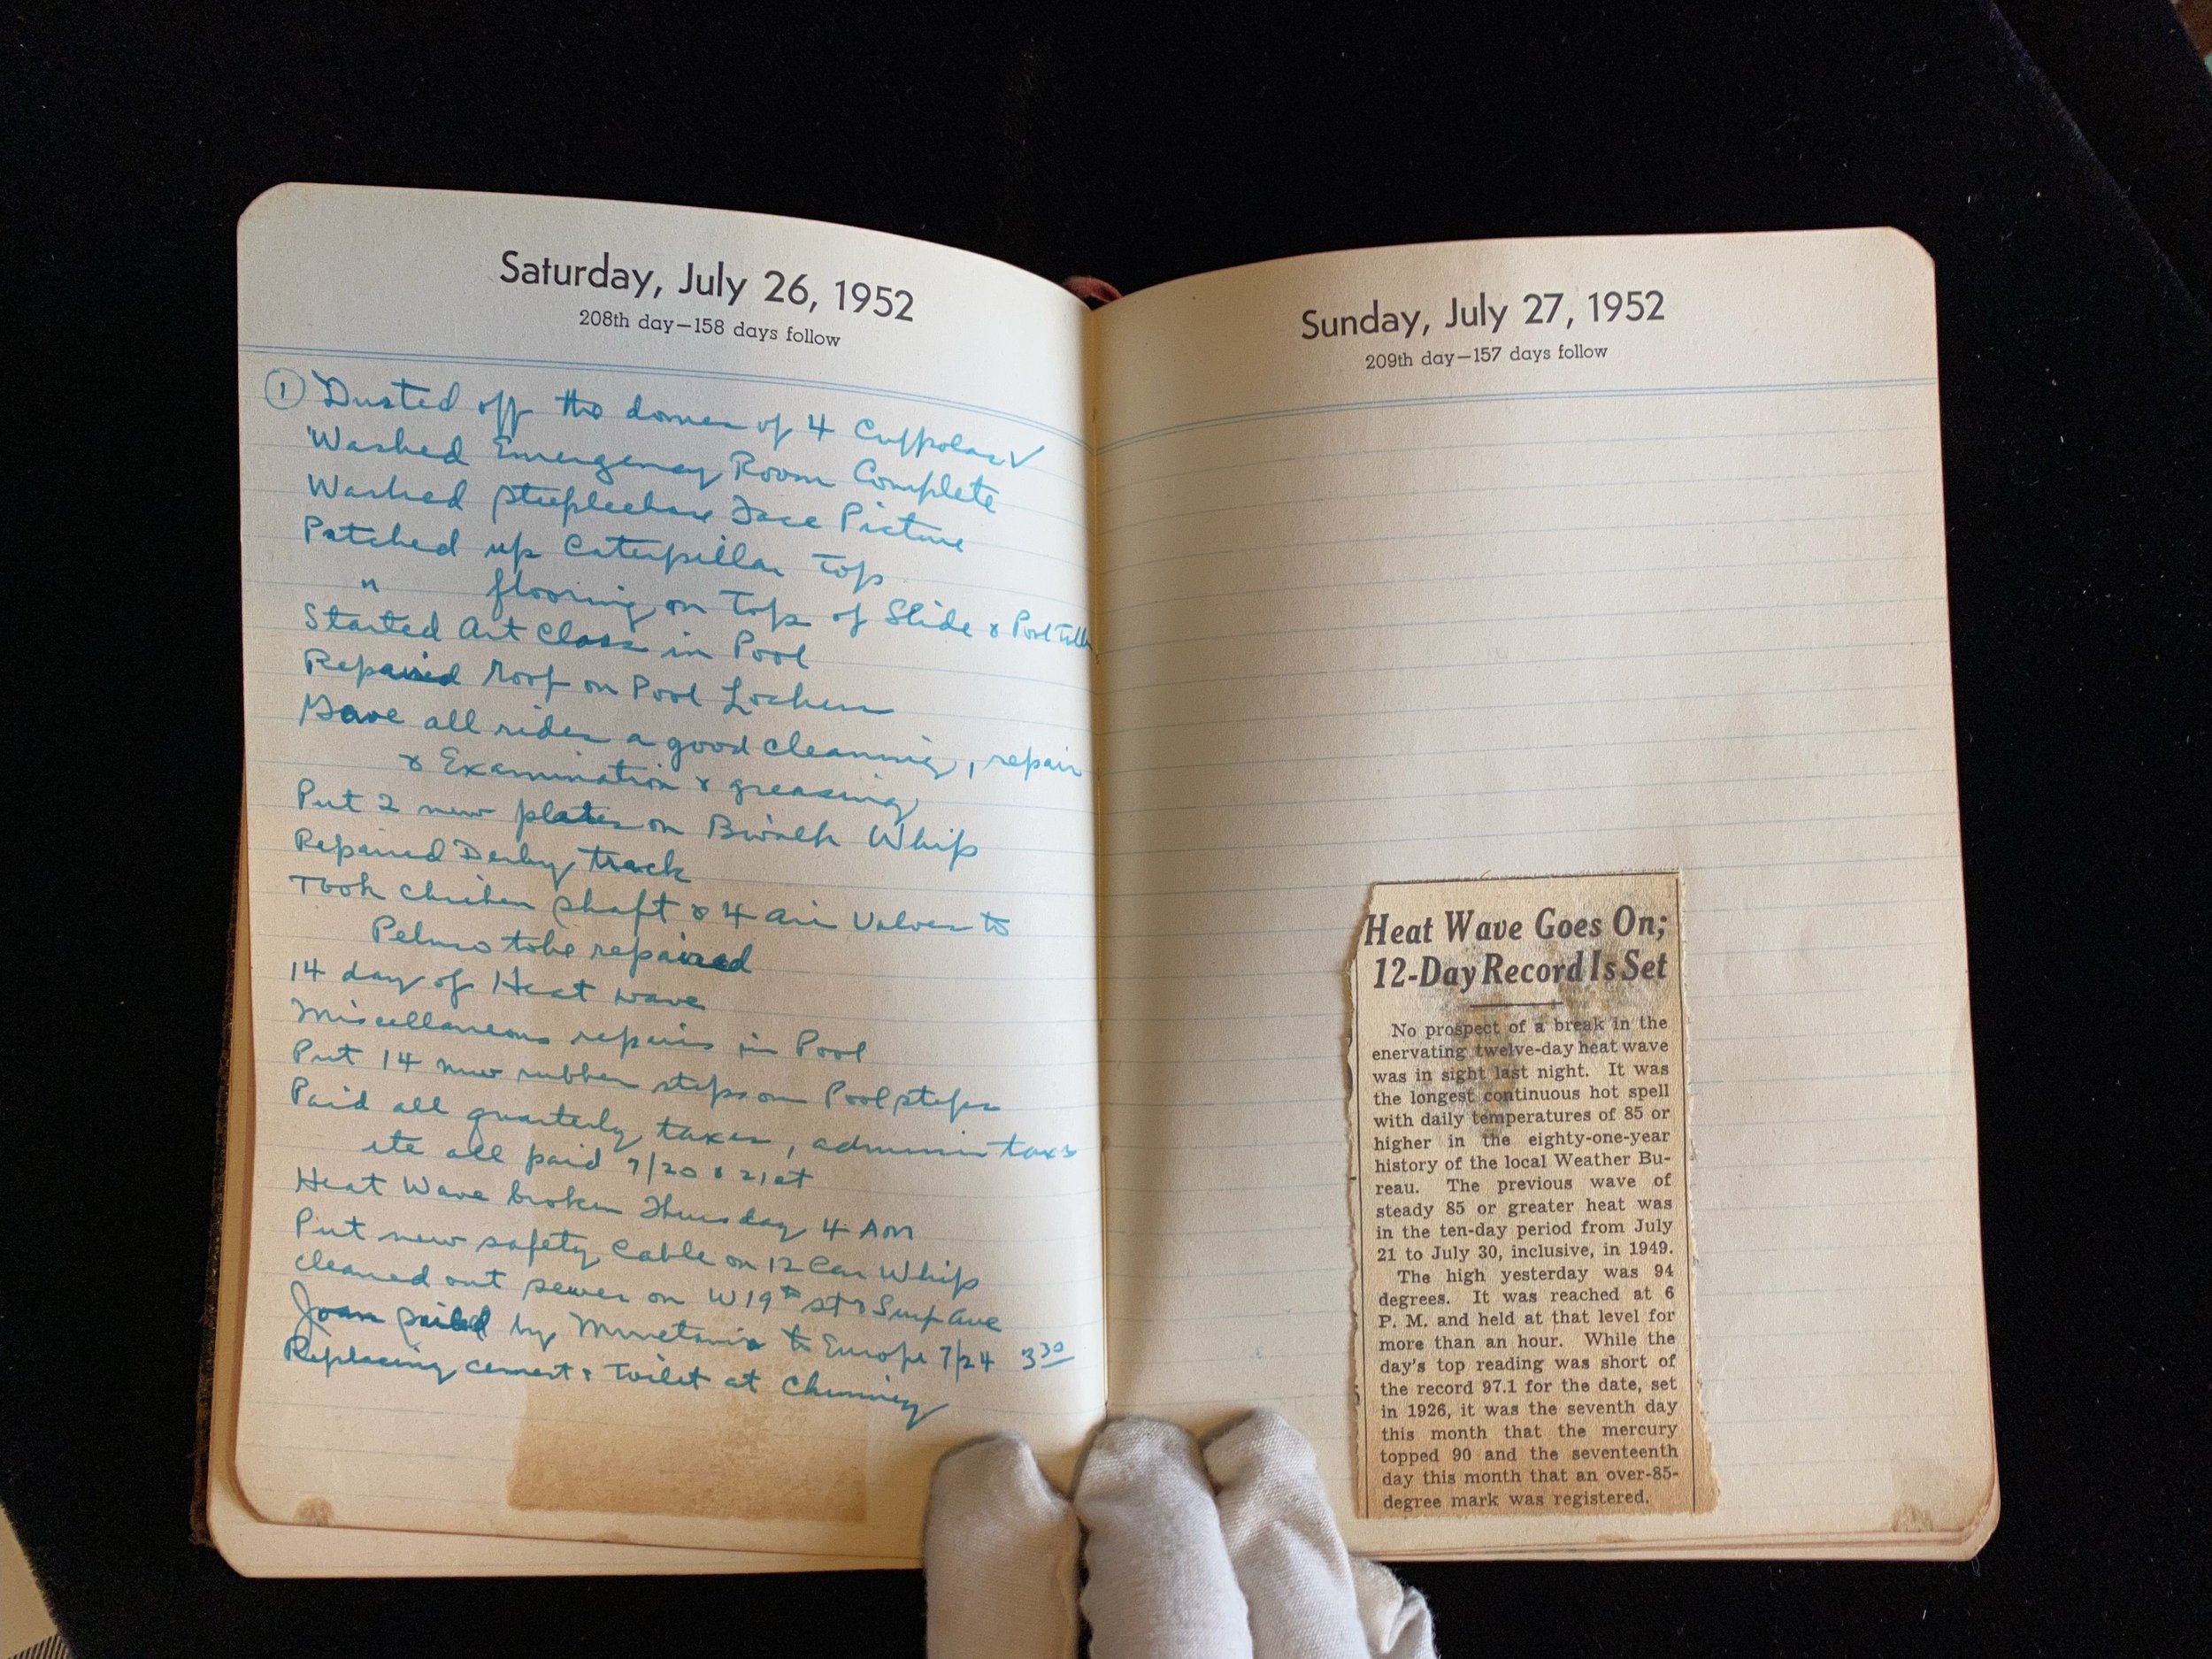 Saturday, July 26, 1952
208th day—158 days follow
① Dusted off the domes of 4 Cuppolas ✓
Washed Emergency Room Complete
Washed Steeplechase Face Picture
Patched up Caterpillar Top
" flooring on Top of Slide & Pool
Started Art Class in Pool
Repaired roof on Pool Lockers
Gave all rides a good cleaning, repair
& Examination & greasing
Put 2 new plates on Bwalk Whip
Repaired Derby track
Took chicken shaft & 4 Air Valves to
to be repaired
14 day of Heat wave
Miscellaneous repairs in Pool
Put 14 new rubber steps on Pool steps
Paid all quarterly taxes, admission taxes
etc all paid 7/20 & 21st
Heat Wave broken Thursday 4 AM
Put new safety Cable on 12 Car Whip
cleaned out sewer on W 19th st & Surf Ave
Joan sailed by to Europe 7/24 3 30
Replacing cement & Toilet at Chimney
Sunday, July 27, 1952
209th day—157 days follow
Heat Wave Goes On;
12-Day Record Is Set
No prospect of a break in the
enervating twelve-day heat wave
was in sight last night. It was
the longest continuous hot spell
with daily temperatures of 85 or
higher in the eighty-one-year
history of the local Weather Bu-
reau. The previous wave of
steady 85 or greater heat was
in the ten-day period from July
21 to July 30, inclusive, in 1949.
The high yesterday was 94
degrees. It was reached at 6
P. M. and held at that level for
more than an hour. While the
day's top reading was short of
the record 97.1 for the date, set
in 1926, it was the seventh day
this month that the mercury
topped 90 and the seventeenth
day this month that an over-85-
degree mark was registered.